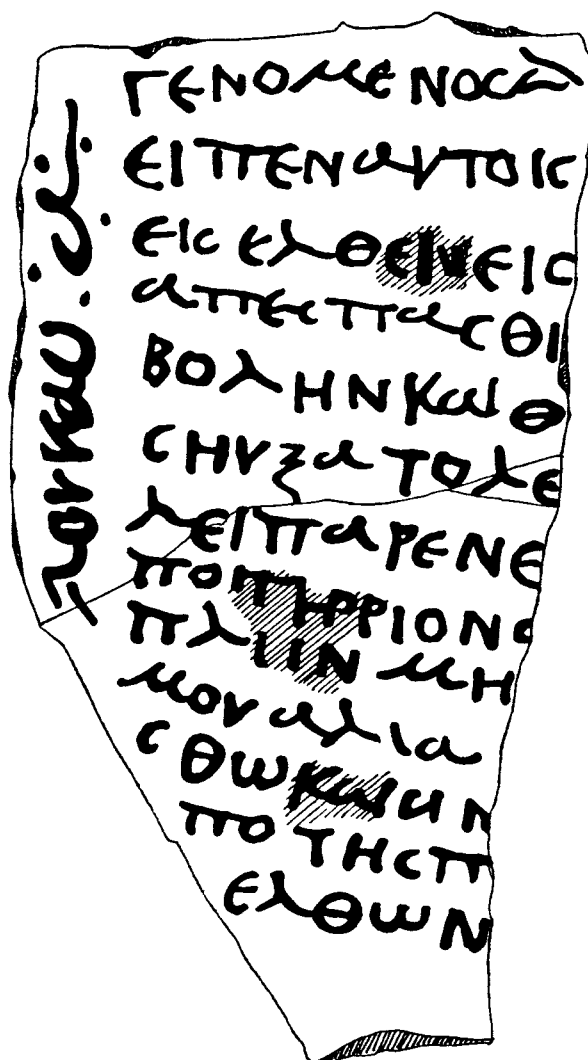 ΛΟΥΚΑΝ
ΓΕΝΟΜΕΝΟϹΔ
ΕΙΠΕΝΑΥΤΟΙϹ
ΕΙϹΕΛΘΕΙΝΕΙϹ
ΑΠΕϹΠΑϹΘΙ
ΒΟΛΗΝΚΑΙΘ
ϹΗΥΞΑΤΟΛΕ
ΛΕΙΠΑΡΕΝΕ
ΠΟΤΗΡΡΙΟΝ
ΠΛΗΝΜΗ
ΜΟΥΑΛΙΑ
ϹΘΩΚΑΙ
ΠΟΤΗϹΠ
ΕΛΘΩΝ